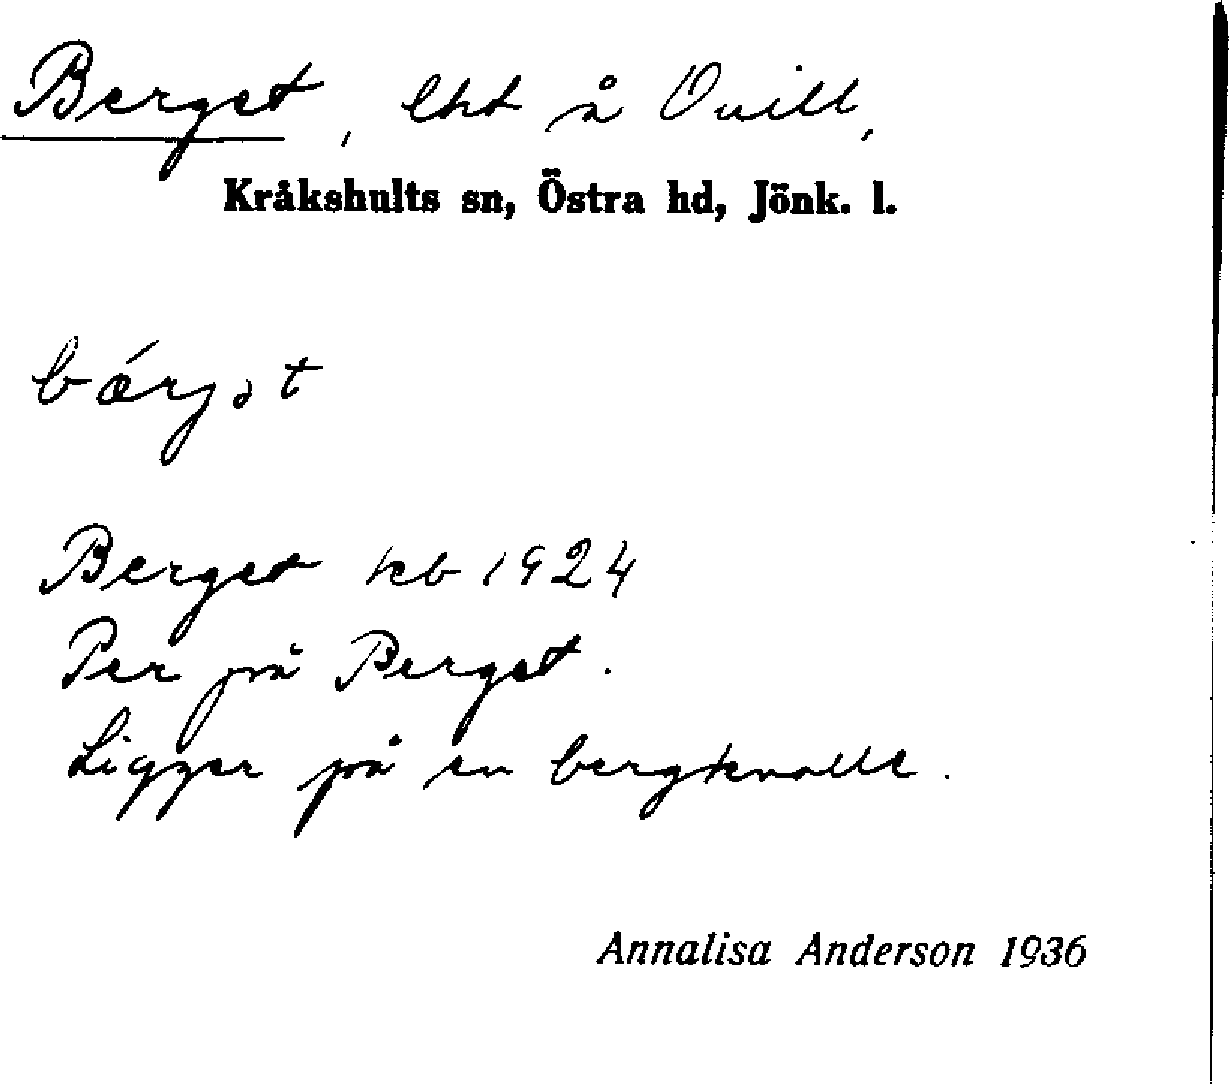 Berget, lht å Ovill,
Kråkshults sn, Östra hd, Jönk. l.
bǽrjət
Berget kb 1924
Per på Berget.
Ligger på en bergknalle.
Annalisa Anderson 1936